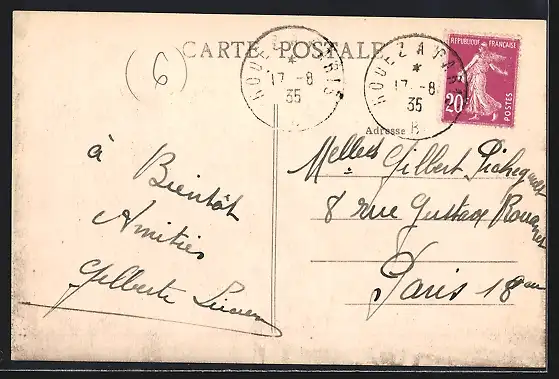 CARTE POSTALE
6
RODEZ A PARIS
17 -8
35
RODEZ A PARIS
17 -8
35
B
REPUBLIQUE FRANÇAISE
20c
POSTES
Adresse
à Bientôt
Amitiés
Gilberte Lucien
Melles Gilbert
8 rue Gustave Rouanet
Paris 18